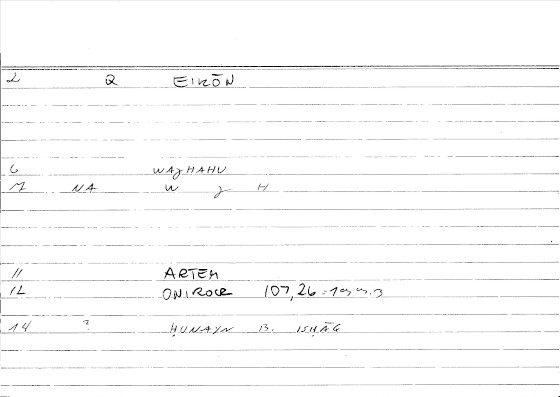 2 Q EIKŌN
6 WAJHAHU
7 NA W J H
11 ARTEM
12 ONIROCR 107,26 =
14 ? ḤUNAYN B. ISḤĀG